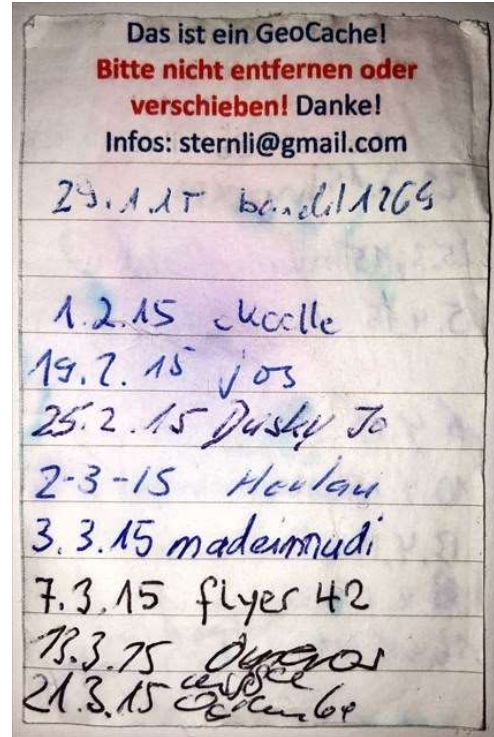 Das ist ein GeoCache!
Bitte nicht entfernen oder
verschieben! Danke!
Infos: sternli@gmail.com
29.1.15
1.2.15
19.2.15 jos
25.2.15 Dusky Jo
2-3-15
3.3.15 madeinmudi
7.3.15 flyer 42
13.3.15
21.3.15